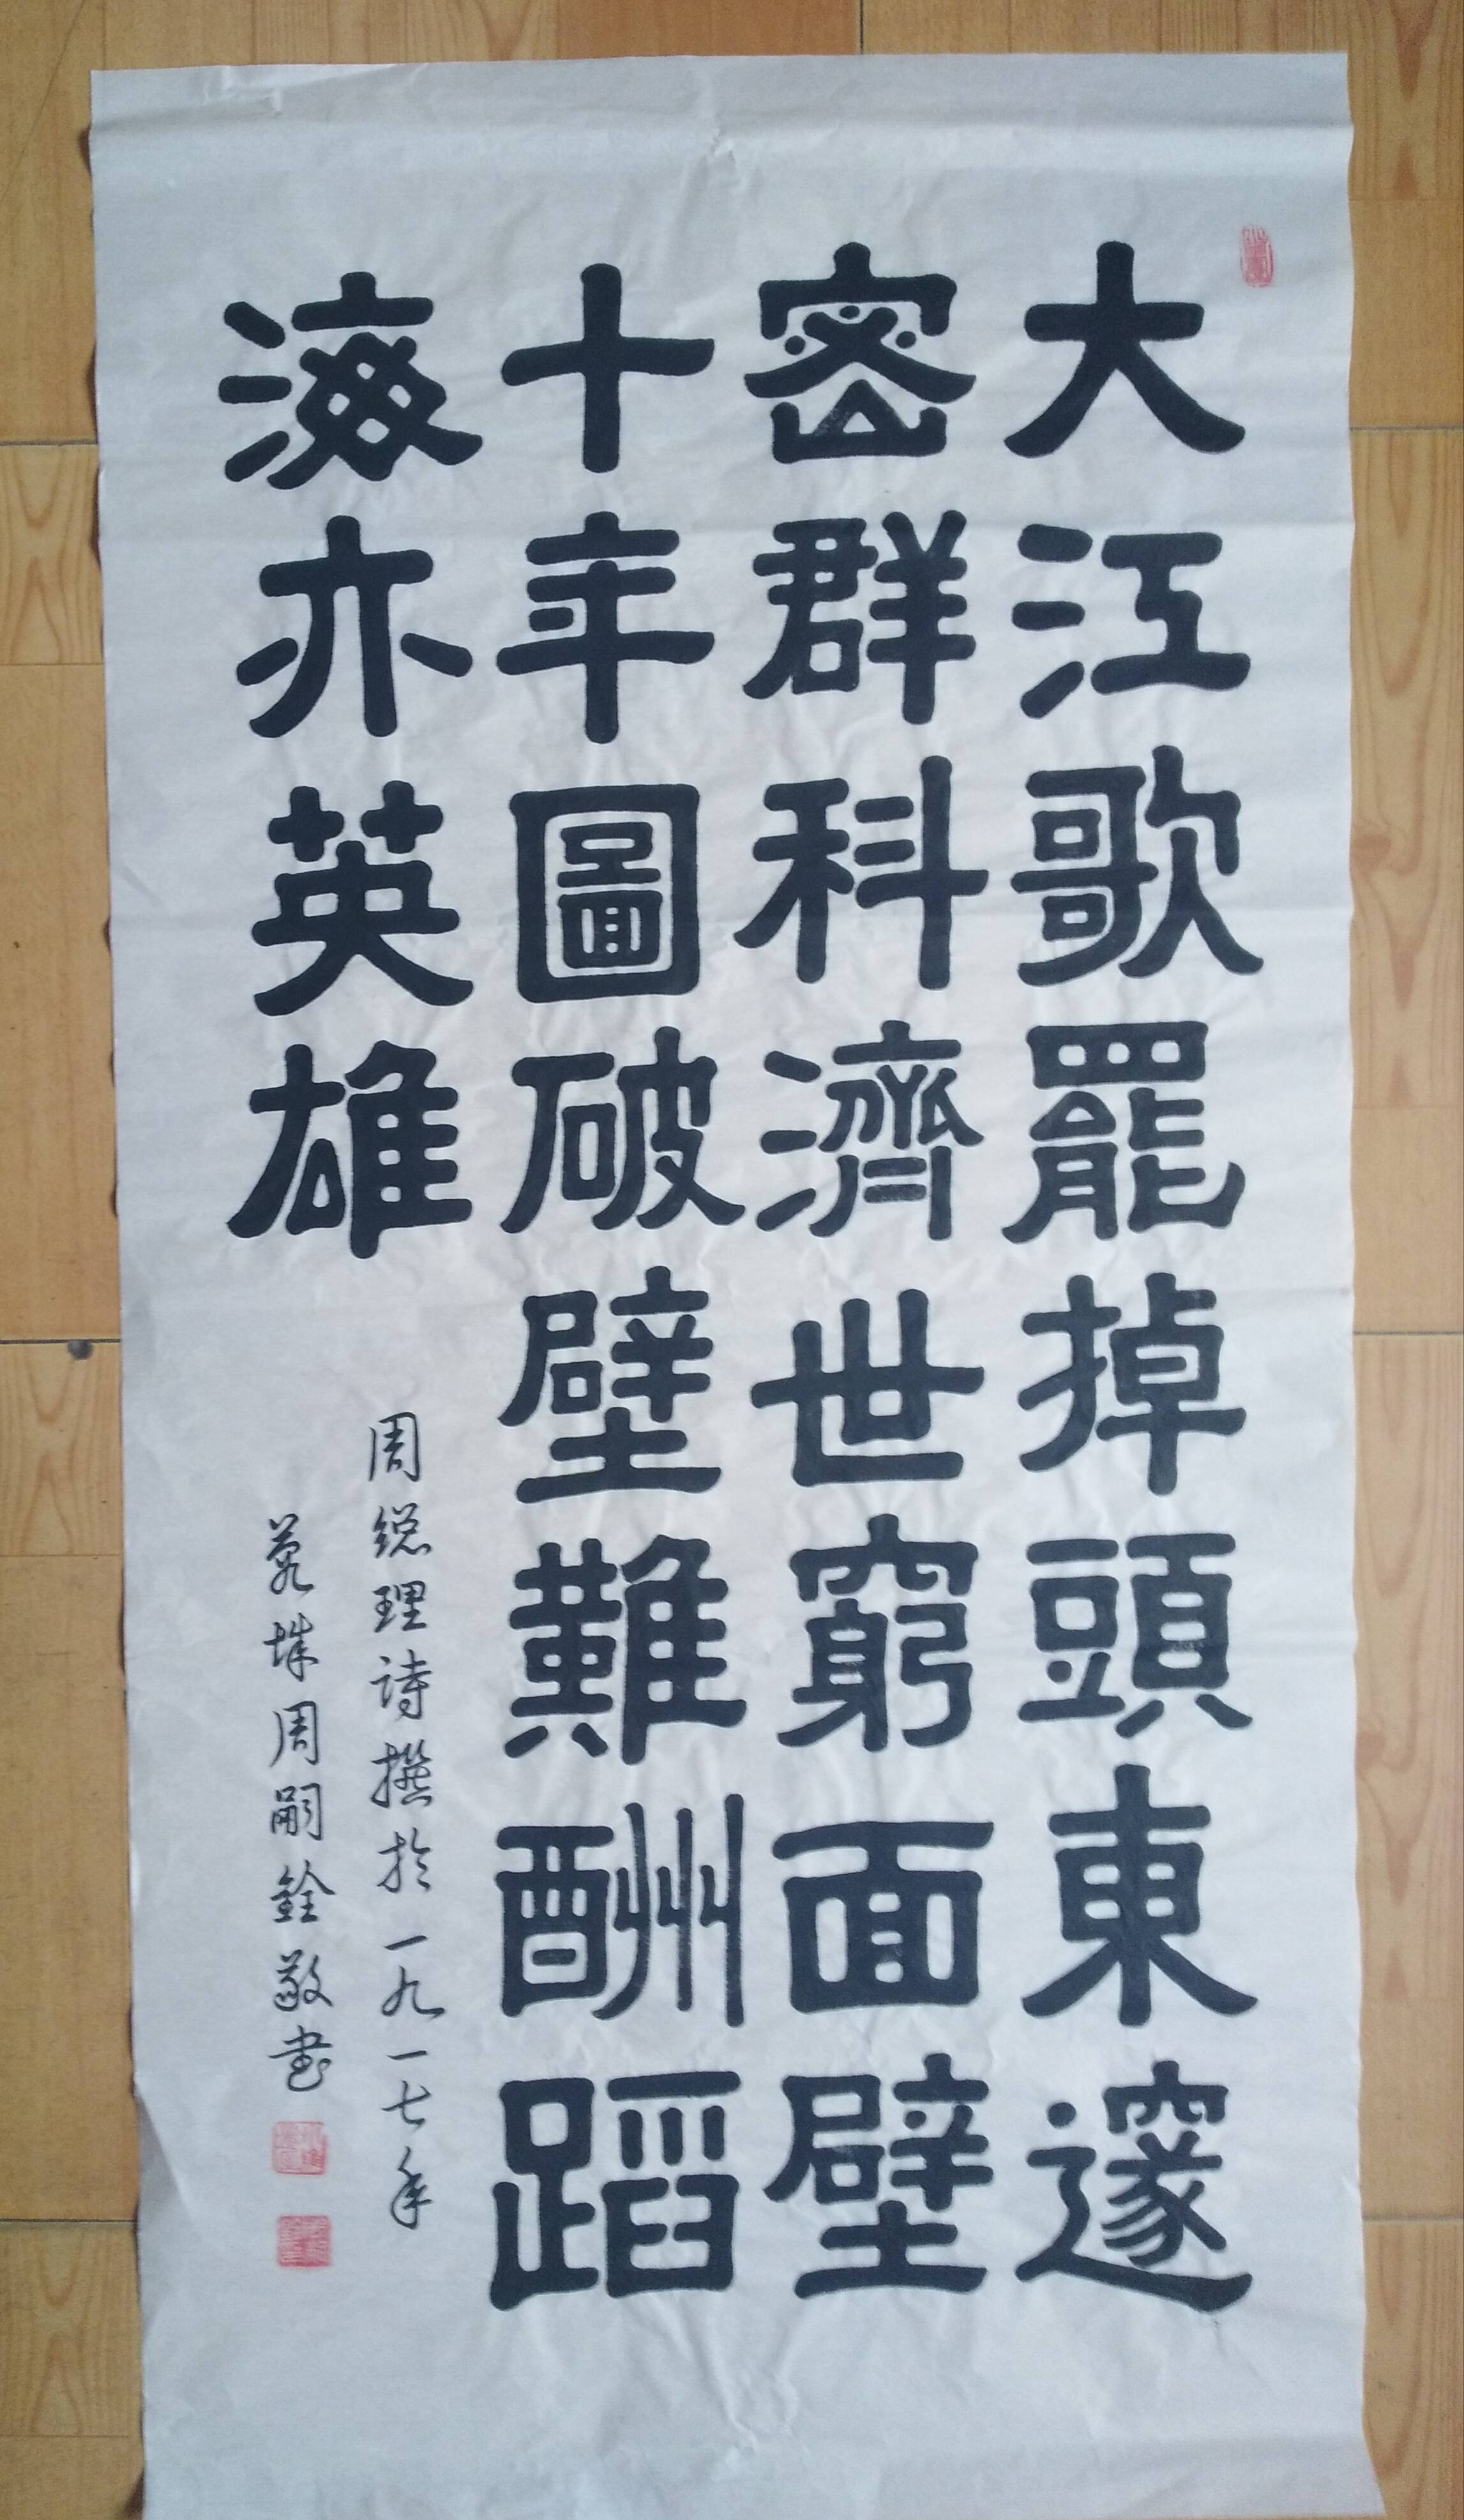 大江歌罷掉頭東邃
密群科濟世窮面壁
十年圖破壁難酬蹈
海亦英雄
周總理詩撰於一九一七年
周嗣銓敬书